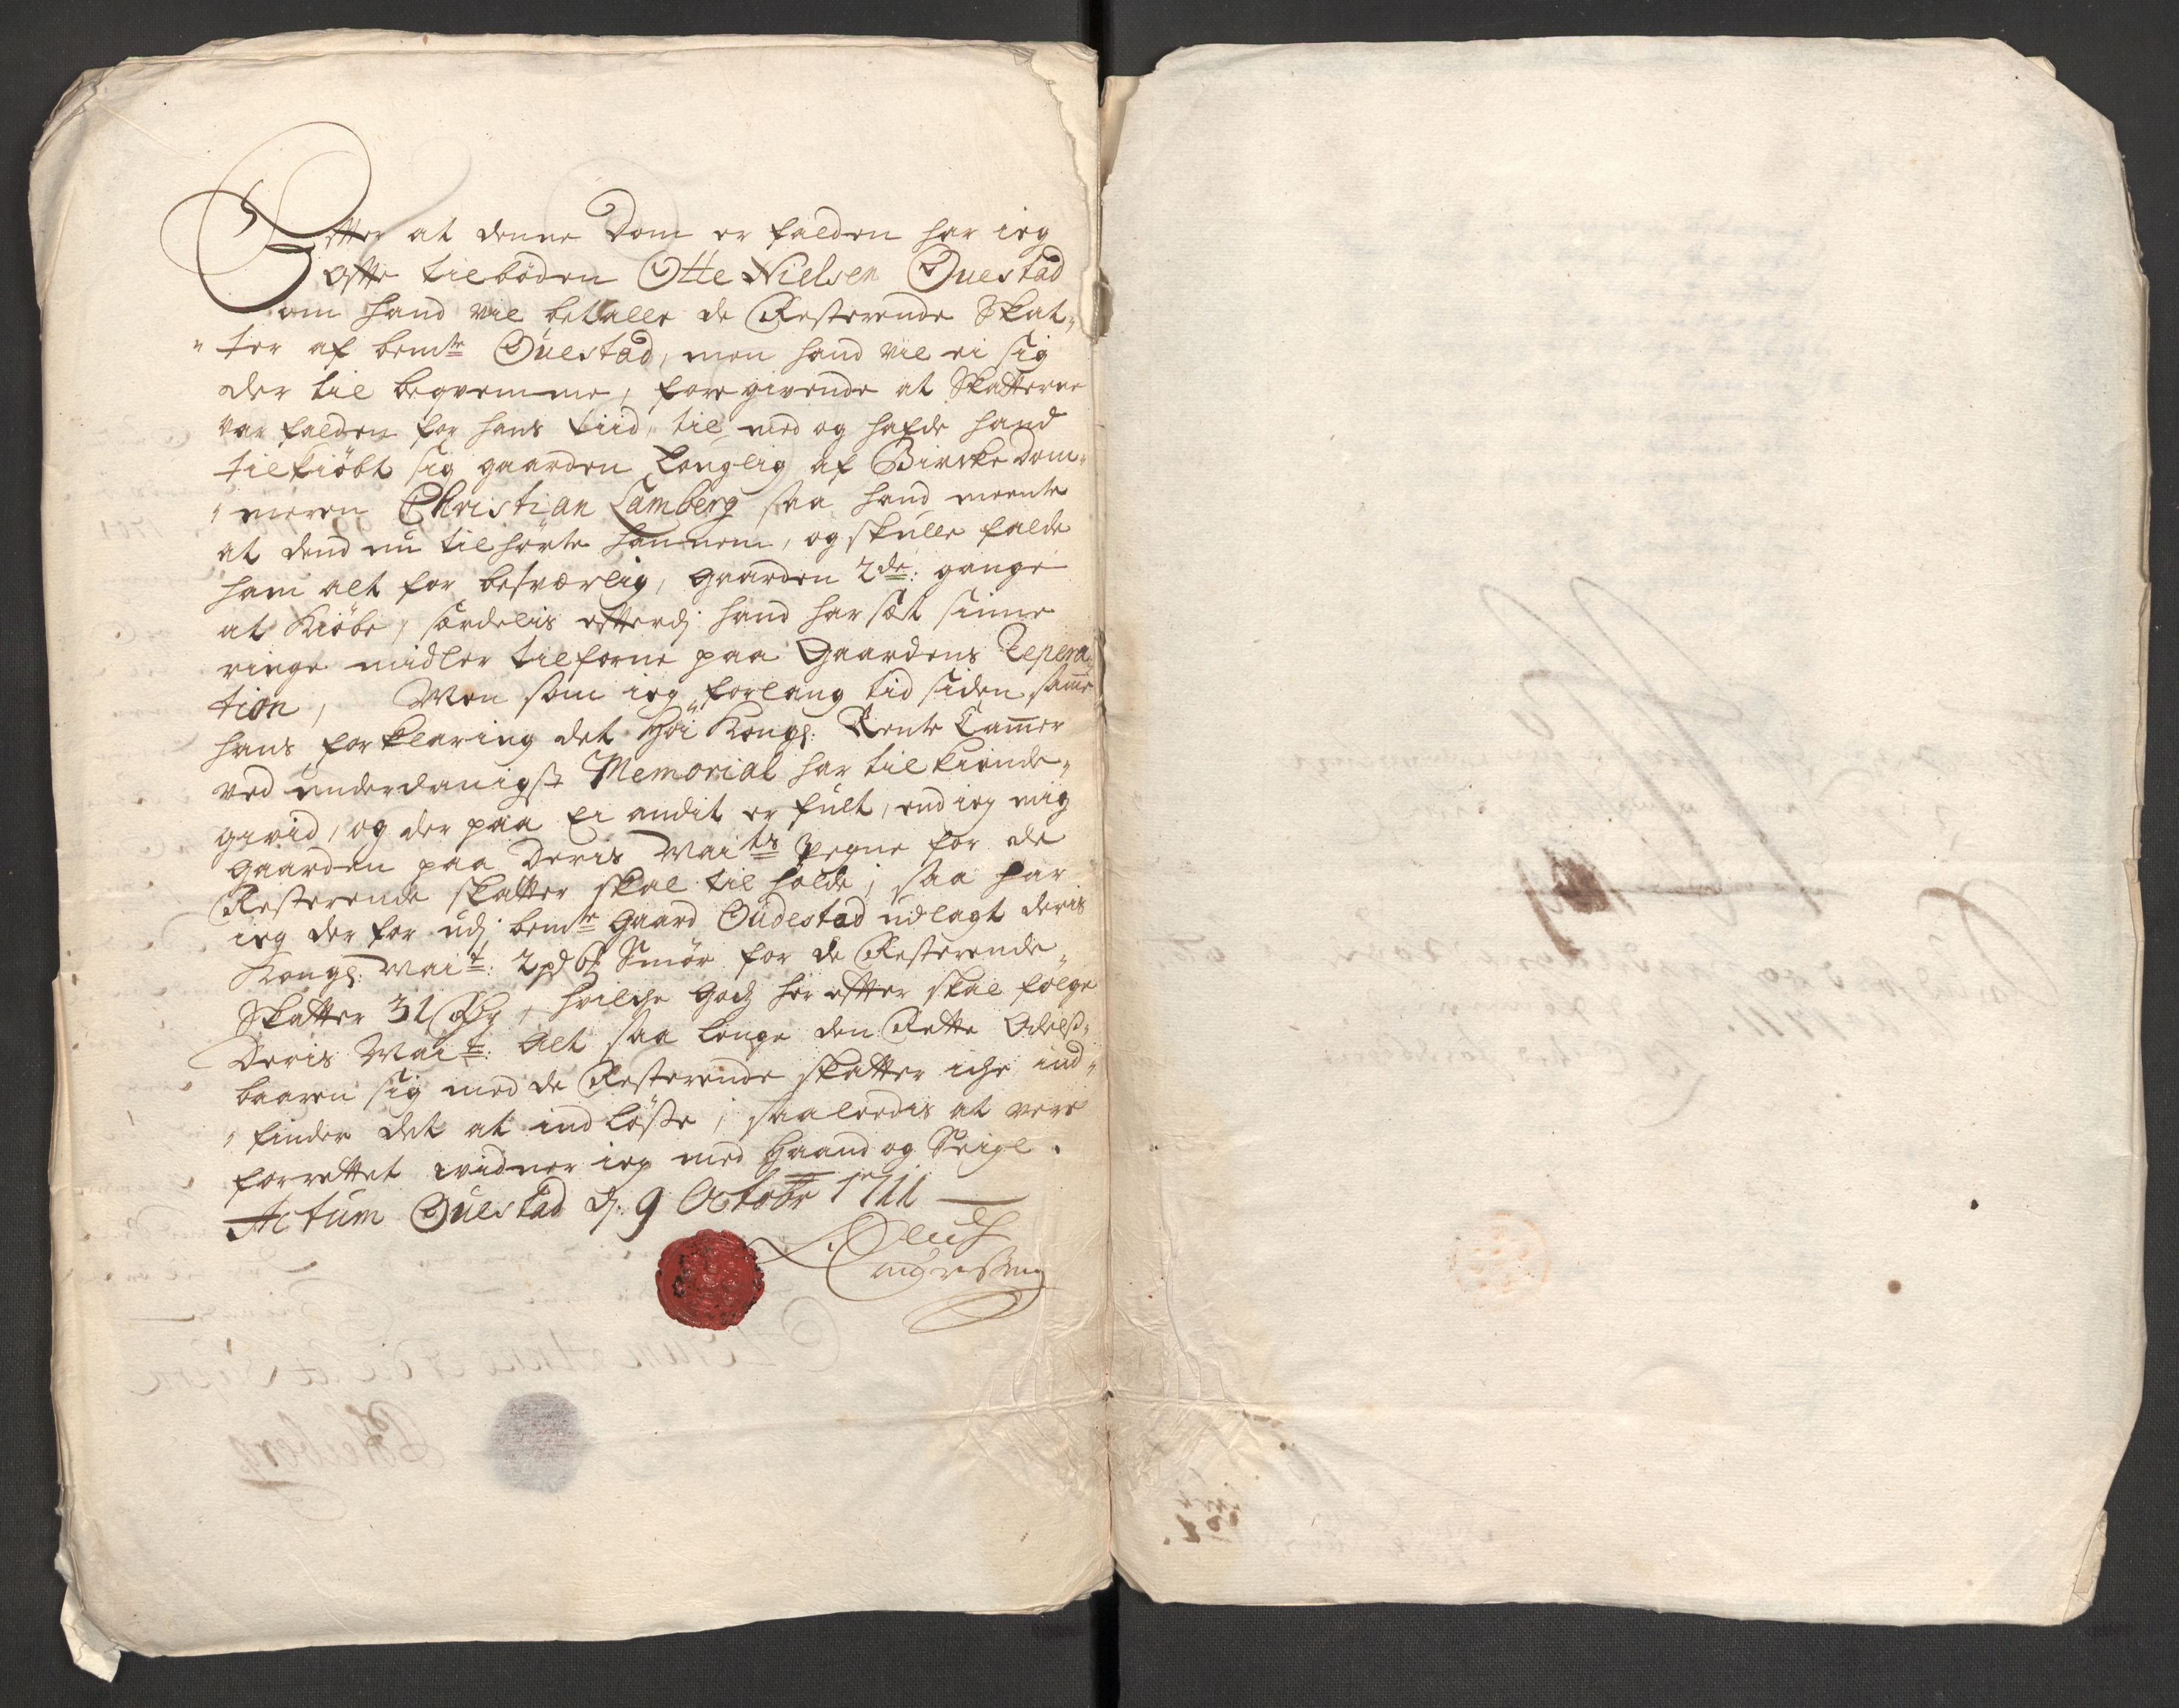 Efter at denne Dom er falden har ieg
ofte tilböden Otte Nielsen Ouestad
om hand vil betalle de Resterende Skat„
„ter af bemte Ouestad, men hand vil ei sig
der til beqvemme, foregivende at Skatterne
var falden for hans tiid, til med og hafde hand
tilkiöbt sig gaarden Longlig af Bircke Dom„
„meren Christian Lamberg saa hand meente
at dend nu tilhörte hannem, og skulle falde
ham alt for besværlig, Gaarden 2de: gange
at Kiöbe, særdelis efterdj hand har sæt sinne
ringe midler tilforne paa Gaardens Repera„
tion, Men som ieg forlang tid siden samme
hans forklaring det Höi Kongl: Rente Cammer
ved underdanigst Memorial har tilkiende„
givid, og der paa Ei andit er fult, end ieg mig
Gaarden paa Deris Maits Vegne for de
Resterende skatter skal til holde; saa har
ieg der for udj bemte Gaard Oudestad udlagt deris
Kongl: Mait: 2 pd 6 Smör for de Resterende„
Skatter 31 Rdr, hvilche Godz her efter skal fölge
Deris Mait: Alt saa lenge den Rette Odelss„
baaren sig med de Resterende skatter iche ind„
„finder det at indlösse; saaleedis at vere
forrettet vidner ieg med Haand og Seigl.
Actum Ouestad d: 9 Octobr 1711